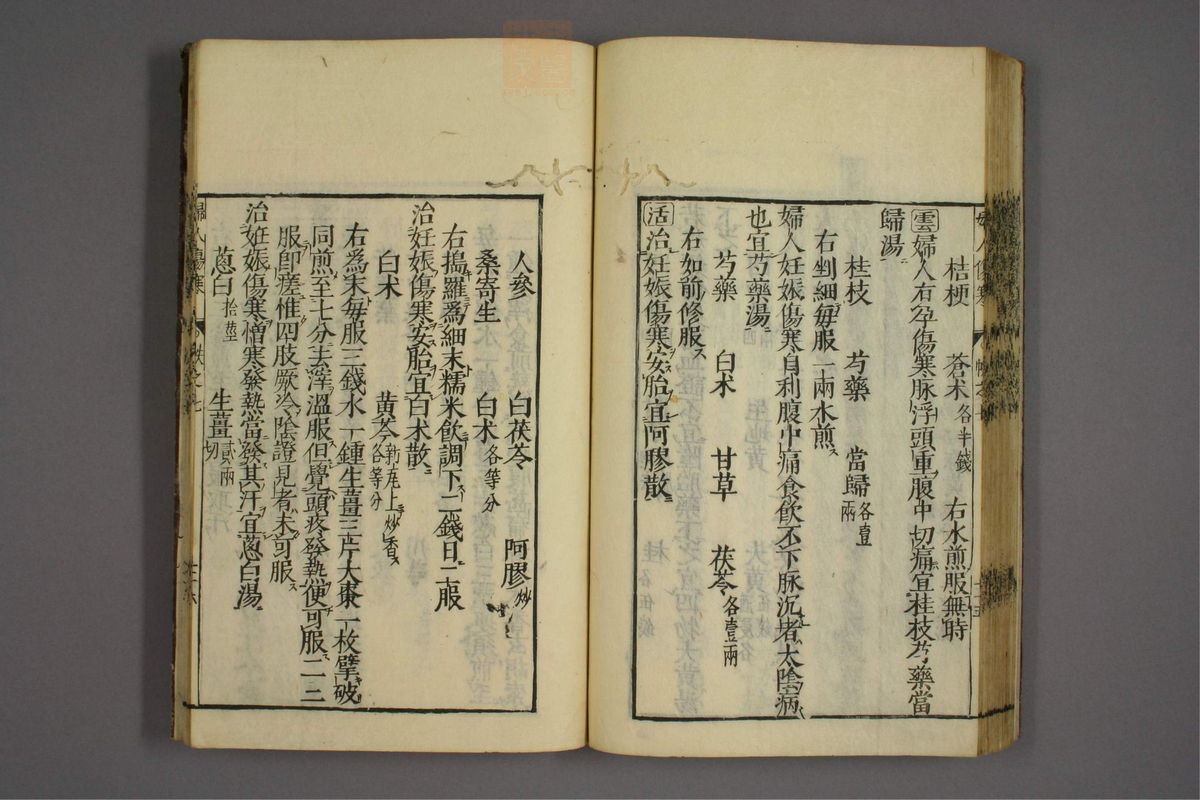 桔梗 蒼朮各半錢 右水煎服無時
雲婦人右孕傷寒脉浮頭重腹中切痛宜桂枝芍藥當
歸湯
桂枝 芍藥 當歸各壹兩
右剉細每服一兩水煎ス
婦人妊娠傷寒自利腹中痛食飲不下脉沉者太陰病
也宜芍藥湯
芍藥 白朮 甘草 茯苓各壹兩
右如前修服ス
活治妊娠傷寒安胎宜阿膠散
人參 白茯苓 阿膠炒
桑寄生 白朮各等分
右搗羅爲細末糯米飲調下二錢日二服
治妊娠傷寒安胎宜白朮散
白朮 黄芩新尾上炒香ス各等分
右爲末每服三錢水一鍾生薑三片大棗一枚擘破
同煎至七分去滓溫服但覺頭疼發熱便可服二三
服卽瘥惟四肢厥冷陰證見者未可服
治妊娠傷寒憎寒發熱當發其汗宜蔥白湯
蔥白拾莖 生薑貳兩切
婦人傷寒 帙之七